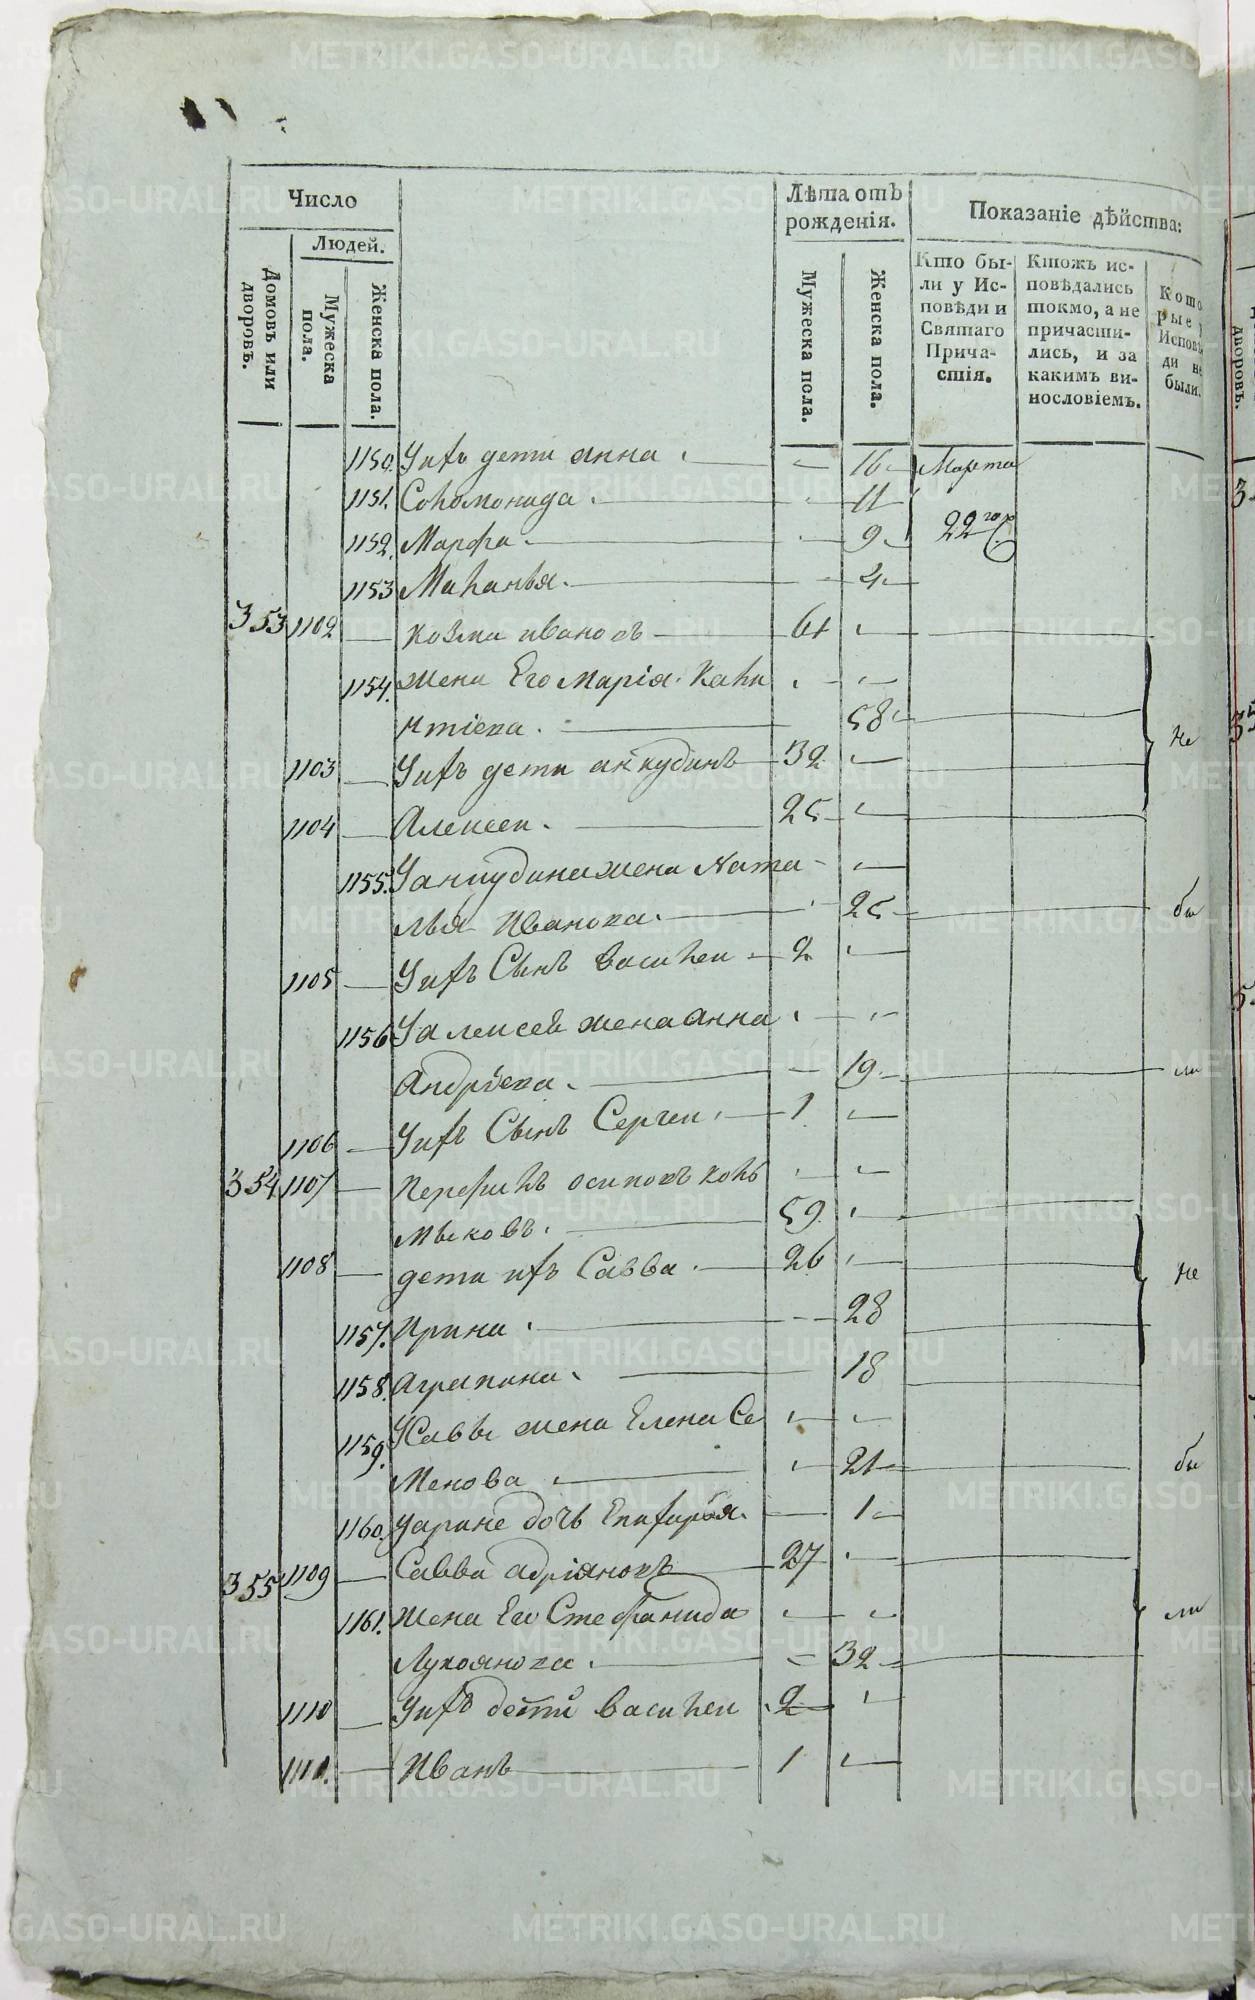 Число
Людей.
Домовъ или дворовъ.
Мужеска пола.
Женска пола.
Лѣта отъ рожденія.
Мужеска пола.
Женска пола.
Показаніе дѣйства:
Кто бы-
ли у Ис-
повѣди и
Святаго
Прича-
стія.
Ктожъ ис-
повѣдались
токмо, а не
причасти-
лись, и за
какимъ ви-
нословіемъ.
Кото
рые
Исповѣ
ди не
были.
1150. Уихъ дети анна 16 Марта
1151. Соломонида 11
1152. Марфа 9 22го
1153 Маланья 4
353 1102 козма ивановъ 61
1154. жена Его Марія Кали
58
1103 Уихъ дети анкудинъ 32 Не
1104 Алексеи 25
1155. Уанкудина жена Ната
лья Иванова 25 бы
1105 Уихъ Сынъ василеи 2
1156 Уалексея жена анна
Андрѣева 19 ли
1106 Уихъ Сынъ Сергеи 1
354 1107 Перфилъ осиповъ колъ
мыковъ 59
1108 дети ихъ Савва 26 Не
1157. Ирина 28
1158. Аграпина 18
1159. Усавы жена Елена Се
Менова 21 бы
1160. Уарине дочь 1
355 1109 Савва адріяновъ 27
1161. жена Его Стефанида ли
Лукоянова 32
1110 Уихъ дети василеи 2
1111. Иванъ 1
METRIKI.GASO-URAL.RU